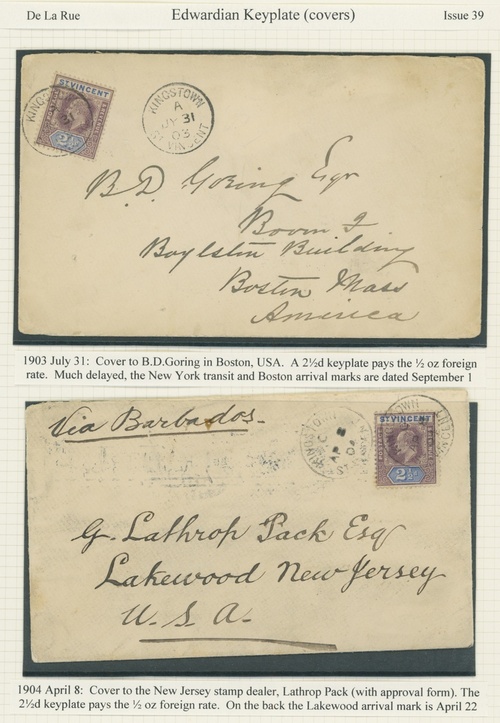 De La Rue Edwardian Keyplate (covers) Issue 39
ST VINCENT
2½D
KINGSTOWN
A
JY 31
03
ST. VINCENT
B. D. Goring Esqr
Boylston Building
Boston Mass
America
1903 July 31: Cover to B.D.Goring in Boston, USA. A 2½d keyplate pays the ½ oz foreign
rate. Much delayed, the New York transit and Boston arrival marks are dated September 1
Via Barbados.
AP 8
04
ST VINCENT
2½D
G. Lathrop Pack Esq
Lakewood New Jersey
U. S. A.
1904 April 8: Cover to the New Jersey stamp dealer, Lathrop Pack (with approval form). The
2½d keyplate pays the ½ oz foreign rate. On the back the Lakewood arrival mark is April 22